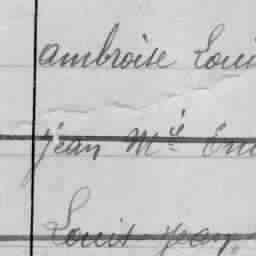 ambroise Loui
jean Mie
Louis jean